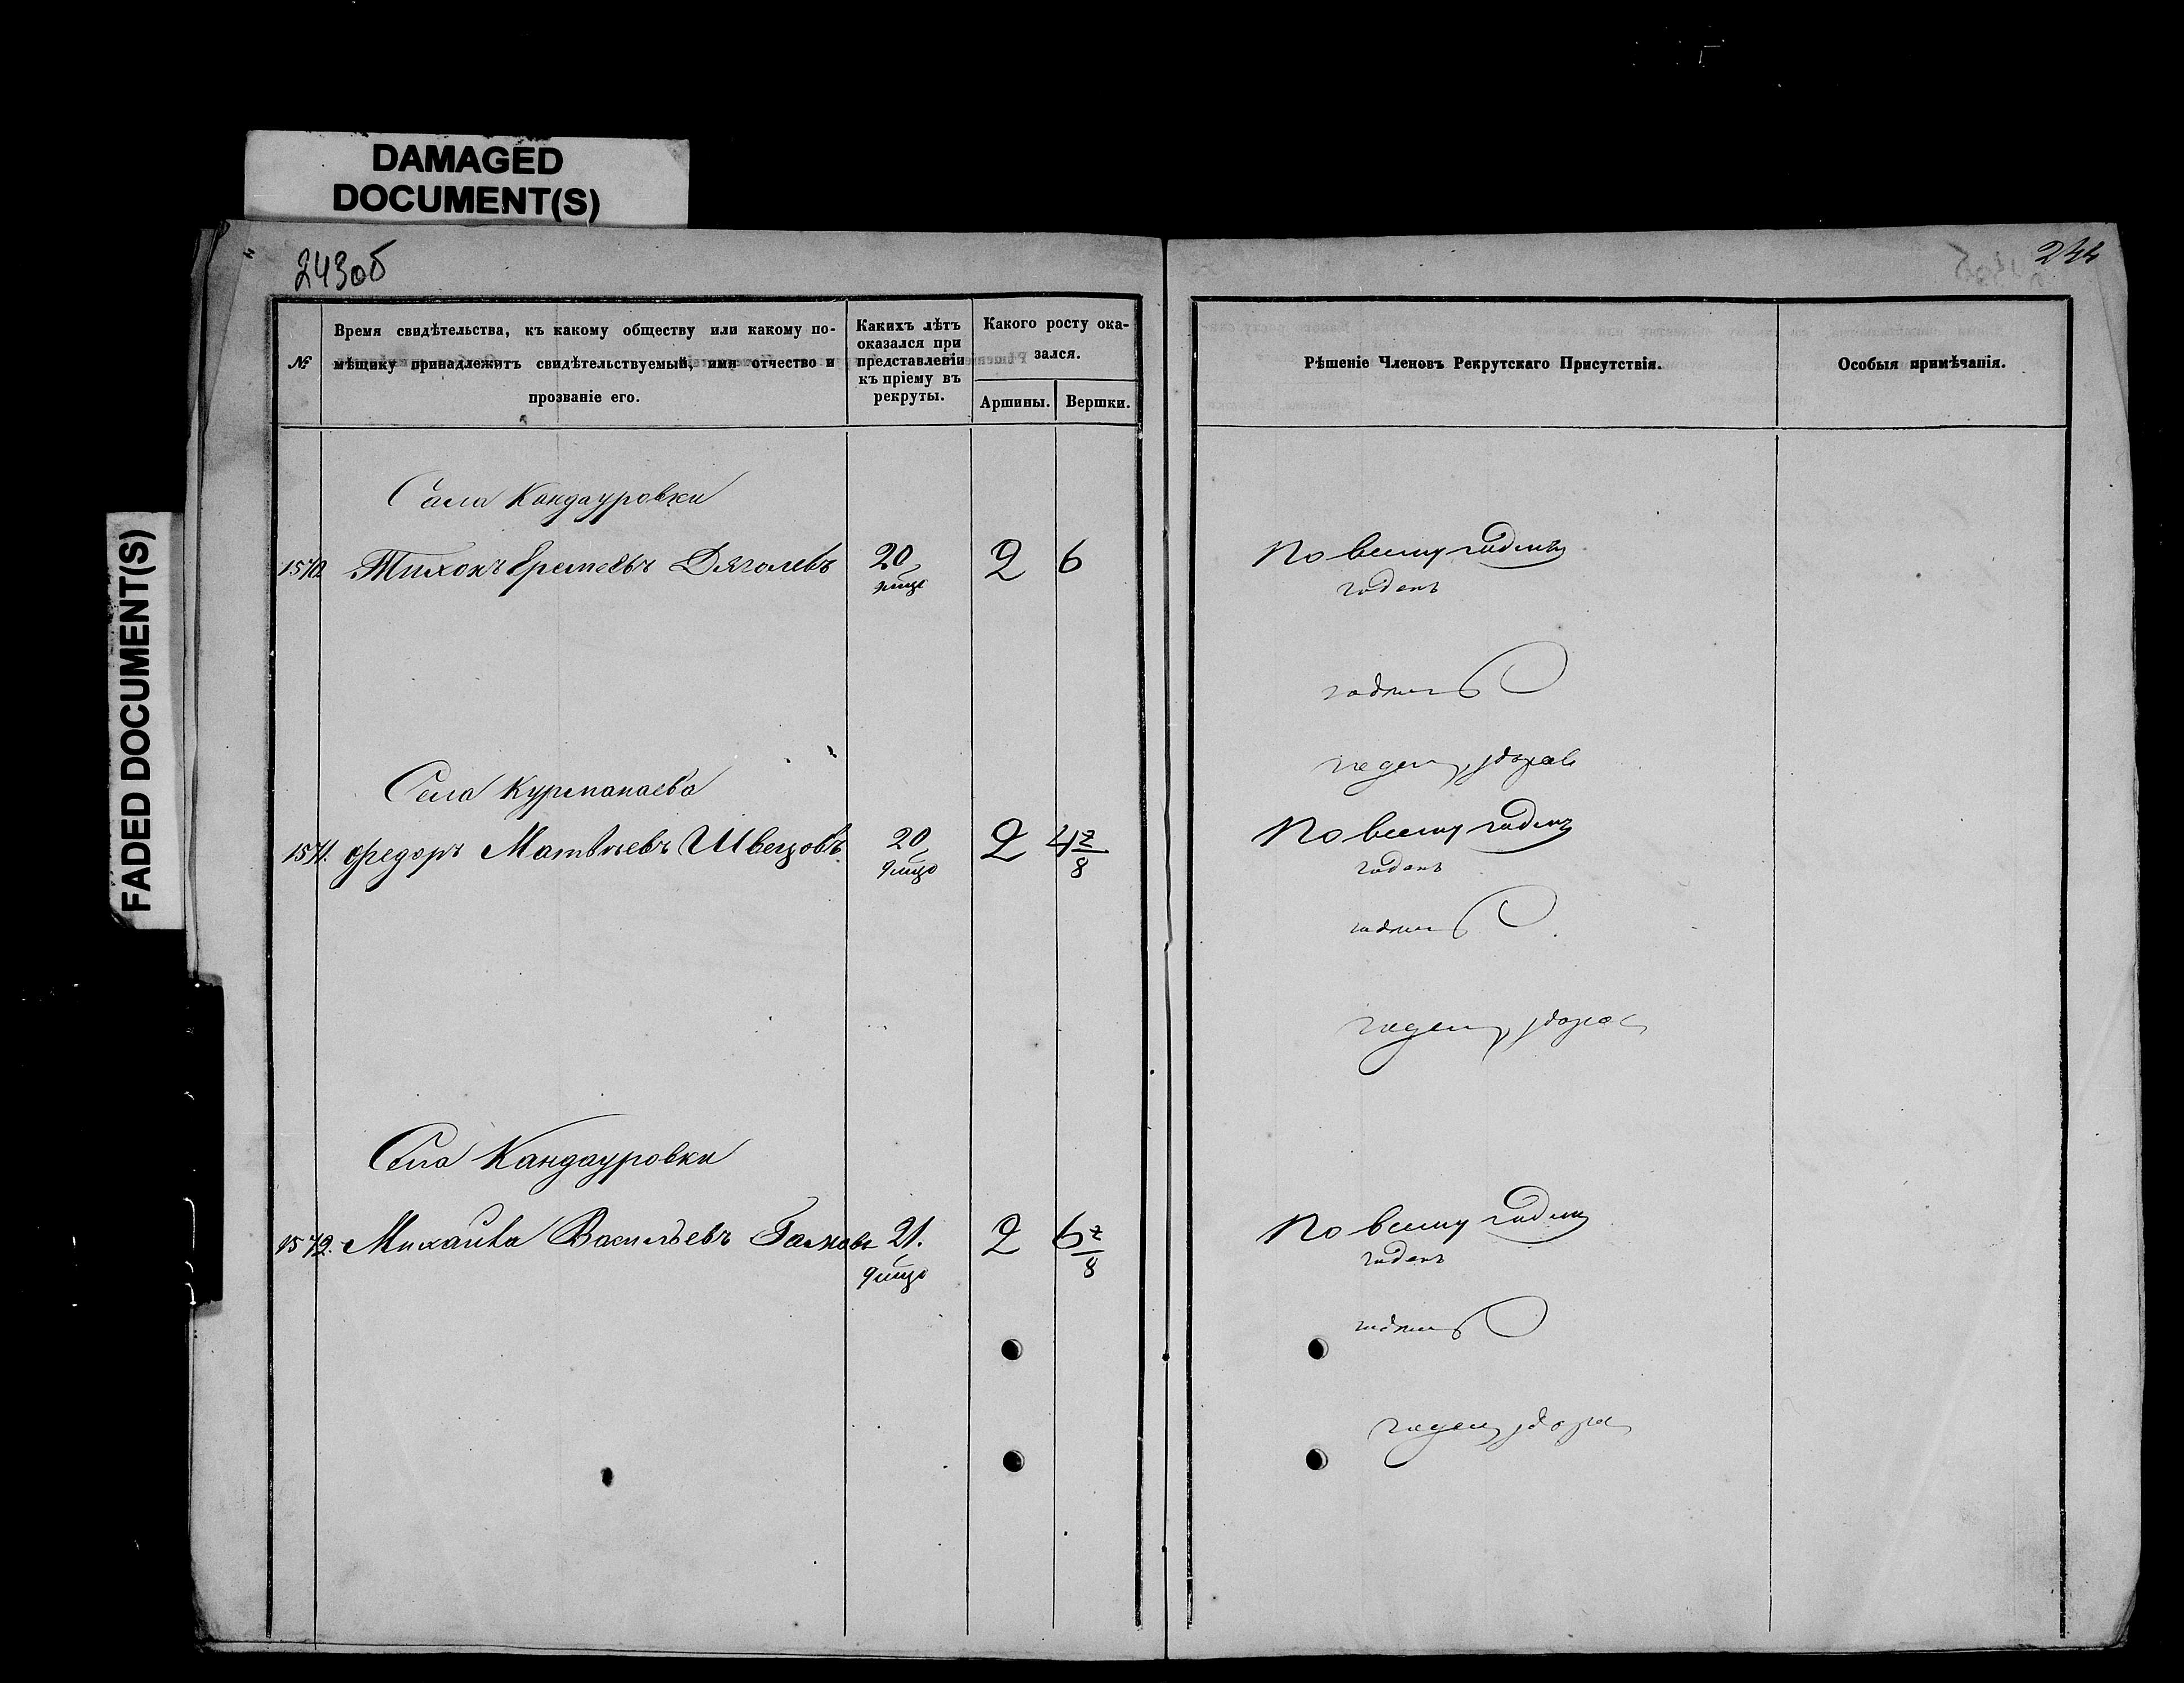 DAMAGED
DOCUMENT(S)
FADED DOCUMENT(S)
243об
№
Время свидѣтельства, къ какому обществу или какому по-
мѣщику принадлежитъ свидѣтельствуемый, имя отчество и
прозваніе его.
Какихъ лѣтъ
оказался при
представленіи
къ пріему въ
рекруты.
Какого росту ока-
зался.
Аршины.
Вершки.
Села Кандауровки
1570 Тихонъ Еремеевъ Дяголевъ 20 2 6
Села Курманаева
1571. Федоръ Матвѣевъ Швецовъ 20 2 4 2/8
Села Кандауровки
1572. Михайла Васильевъ 21. 2 6 2/8
244
Рѣшеніе Членовъ Рекрутскаго Присутствія.
Особыя примѣчанія.
По всему годенъ
годенъ
годенъ
годенъ, здоровъ
По всему годенъ
годенъ
годенъ
годенъ, здоровъ
По всему годенъ
годенъ
годенъ
годенъ здоровъ